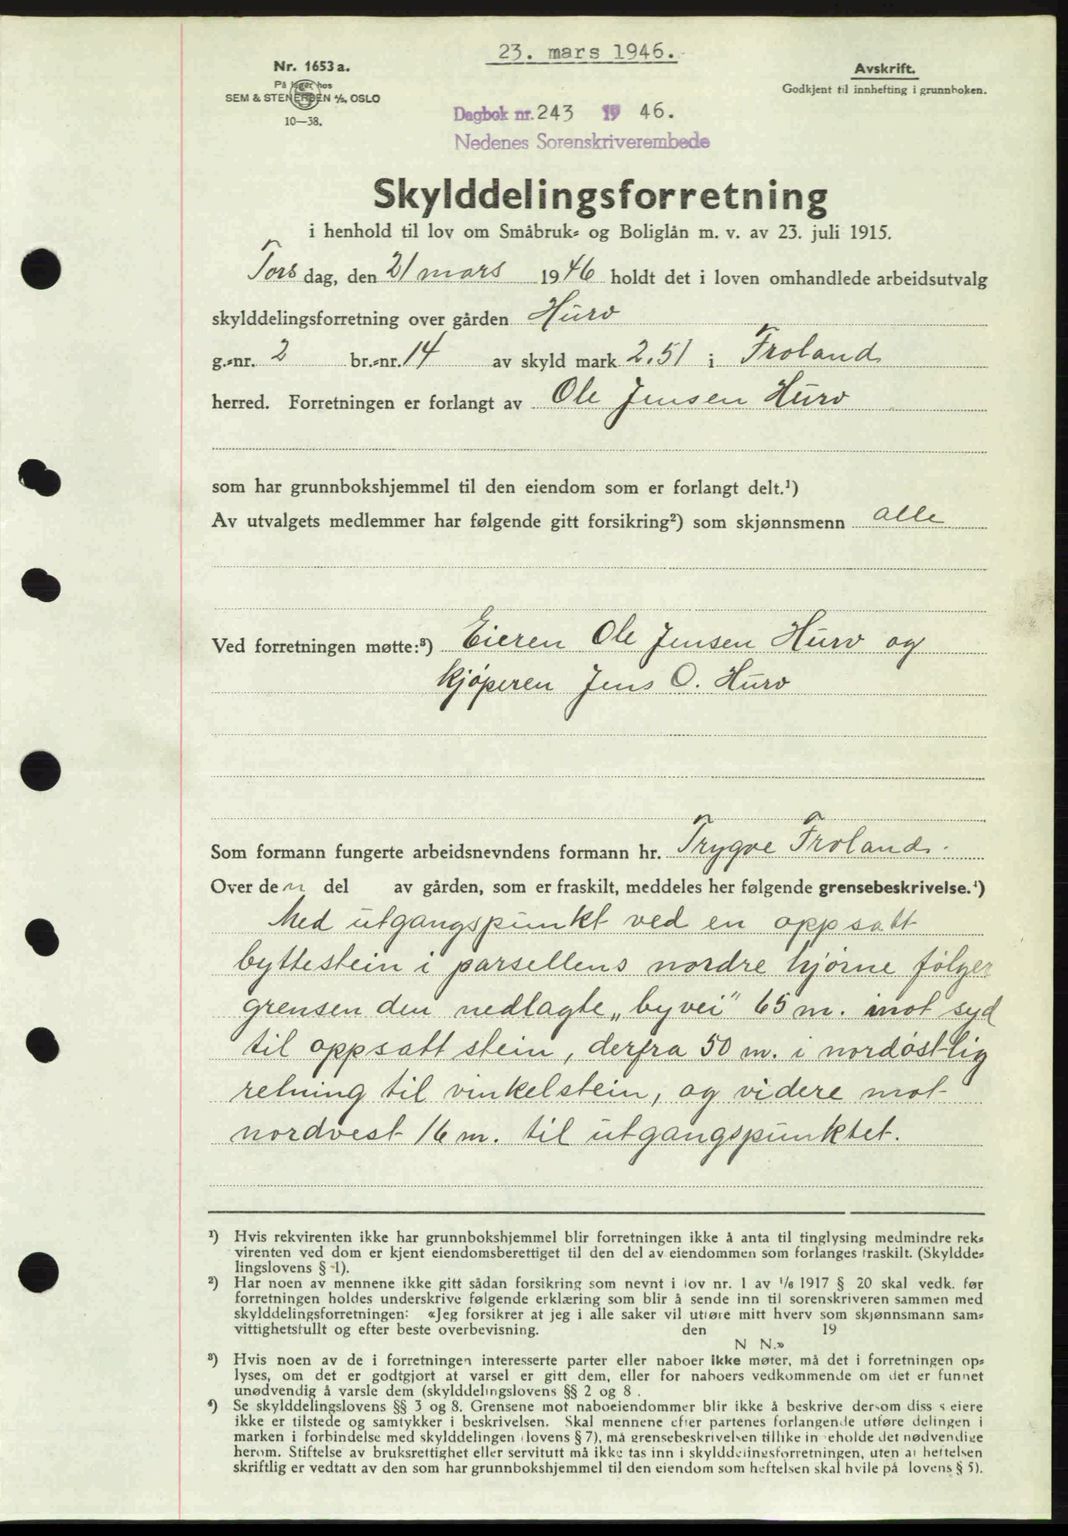 23. mars 1946.
Nr. 1653 a.
På lager hos
SEM & STENERSEN A/S, OSLO
10—38.
Avskrift.
Godkjent til innhefting i grunnboken.
Dagbok nr. 243 19 46.
Nedenes Sorenskriverembede
Skylddelingsforretning
i henhold til lov om Småbruk- og Boliglån m. v. av 23. juli 1915.
Tors dag, den 21 mars 1946 holdt det i loven omhandlede arbeidsutvalg
skylddelingsforretning over gården Hurv
g.-nr. 2 br.-nr. 14 av skyld mark 2.51 i Froland
herred. Forretningen er forlangt av Ole Jensen Hurv
som har grunnbokshjemmel til den eiendom som er forlangt delt.¹)
Av utvalgets medlemmer har følgende gitt forsikring²) som skjønnsmenn alle
Ved forretningen møtte:³) Eieren Ole Jensen Hurv og
kjøperen Jens O. Hurv
Som formann fungerte arbeidsnevndens formann hr. Trygve Froland.
Over den del av gården, som er fraskilt, meddeles her følgende grensebeskrivelse.⁴)
Med utgangspunkt ved en oppsatt
byttestein i parsellens nordre hjørne følger
grensen den nedlagte „byvei" 65 m. imot syd
til oppsatt stein, derfra 50 m. i nordøstlig
retning til vinkelstein, og videre mot
nordvest 16 m. til utgangspunktet.
¹) Hvis rekvirenten ikke har grunnbokshjemmel blir forretningen ikke å anta til tinglysing medmindre rek-
virenten ved dom er kjent eiendomsberettiget til den del av eiendommen som forlanges fraskilt. (Skyldde-
lingslovens § 1).
²) Har noen av mennene ikke gitt sådan forsikring som nevnt i lov nr. 1 av 1/6 1917 § 20 skal vedk. før
forretningen holdes underskrive følgende erklæring som blir å sende inn til sorenskriveren sammen med
skylddelingsforretningen: «Jeg forsikrer at jeg i alle saker vil utføre mitt hverv som skjønnsmann sam-
vittighetsfullt og efter beste overbevisning. den 19
N N.»
³) Hvis noen av de i forretningen interesserte parter eller naboer ikke møter, må det i forretningen op-
lyses, om det er godtgjort at varsel er gitt dem, eller for naboers vedkommende om det er funnet
unødvendig å varsle dem (skylddelingslovens §§ 2 og 8 .
⁴) Se skylddelingslovens §§ 3 og 8. Grensene mot naboeiendommer blir ikke å beskrive dersom diss s eiere
ikke er tilstede og samtykker i beskrivelsen. Skal mennene efter partenes forlangende utføre delingen i
marken i forbindelse med skylddelingen (lovens § 7), må grensebeskrivelsen tillike in eholde det nødvendige
herom. Stiftelse av bruksrettighet eller servitutt må ikke tas inn i skylddelingsforretningen, uten at heftelsen
skriftlig er vedtatt av den som har grunnbokshjemmel til den eiendom som heftelsen skal hvile på lovens § 5).